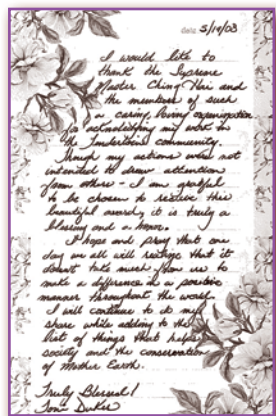 date 5/19/08
I would like to
thank the Supreme
Master Ching Hai and
the members of such
a caring, loving organization
for acknowledging my work in
the Tenderloin community.
Though my actions were not
intended to draw attention
from others - I am grateful
to be chosen to receive this
beautiful award, it is truly a
blessing and a honor.
I hope and pray that one
day we all will realize that it
doesn't take much from us to
make a difference in a positive
manner throughout the world.
I will continue to do my
share while adding to the
list of things that helps
society and the conservation
of Mother Earth.
Truly Blessed!